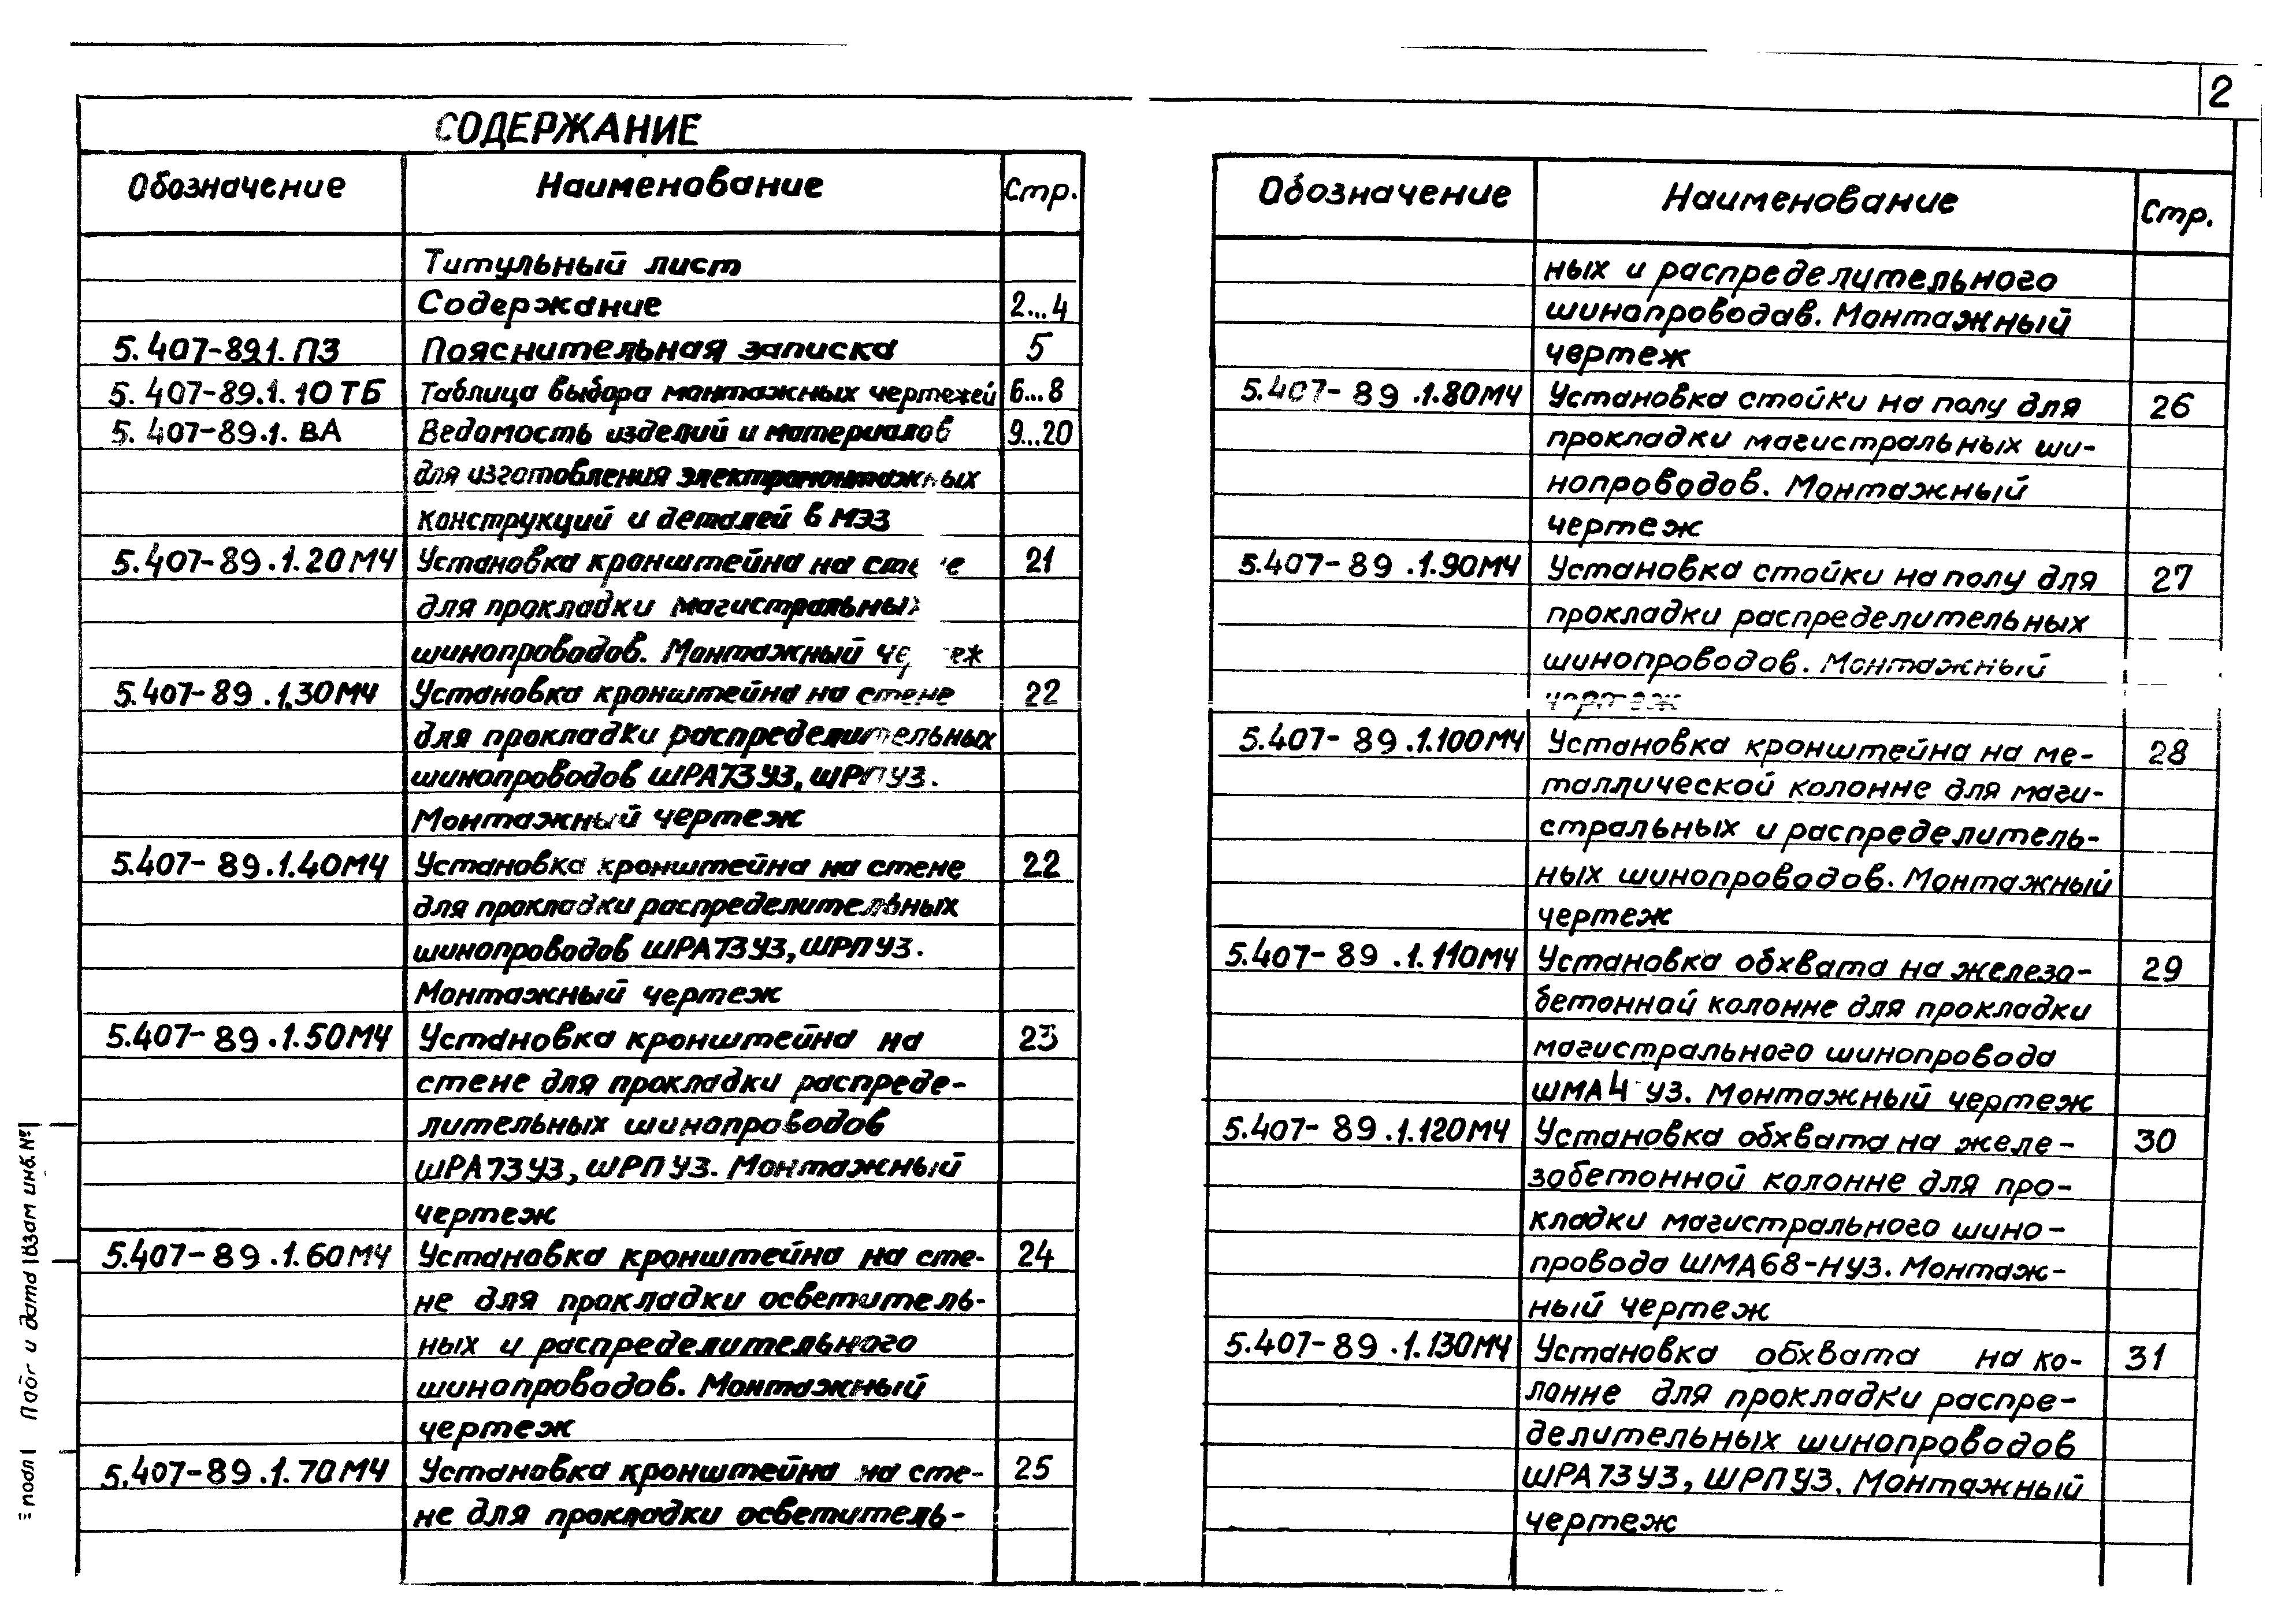 2
СОДЕРЖАНИЕ
Обозначение Наименование Стр.
Титульный лист
Содержание 2...4
5.407-89.1.ПЗ Пояснительная записка 5
5.407-89.1.10ТБ Таблица выбора монтажных чертежей 6...8
5.407-89.1.ВА Ведомость изделий и материалов 9...20
для изготовления электромонтажных
конструкций и деталей в МЭЗ
5.407-89.1.20МЧ Установка кронштейна на стене 21
для прокладки магистральных
шинопроводов. Монтажный чертеж
5.407-89.1.30МЧ Установка кронштейна на стене 22
для прокладки распределительных
шинопроводов ШРА73У3, ШРПУ3.
Монтажный чертеж
5.407-89.1.40МЧ Установка кронштейна на стене 22
для прокладки распределительных
шинопроводов ШРА73У3, ШРПУ3.
Монтажный чертеж
5.407-89.1.50МЧ Установка кронштейна на 23
стене для прокладки распреде-
лительных шинопроводов
ШРА73У3, ШРПУ3. Монтажный
чертеж
5.407-89.1.60МЧ Установка кронштейна на сте- 24
не для прокладки осветитель-
ных и распределительного
шинопроводов. Монтажный
чертеж
5.407-89.1.70МЧ Установка кронштейна на сте- 25
не для прокладки осветитель-
Обозначение Наименование Стр.
ных и распределительного
шинопроводов. Монтажный
чертеж
5.407-89.1.80МЧ Установка стойки на полу для 26
прокладки магистральных ши-
нопроводов. Монтажный
чертеж
5.407-89.1.90МЧ Установка стойки на полу для 27
прокладки распределительных
шинопроводов. Монтажный
чертеж
5.407-89.1.100МЧ Установка кронштейна на ме- 28
таллической колонне для маги-
стральных и распределитель-
ных шинопроводов. Монтажный
чертеж
5.407-89.1.110МЧ Установка обхвата на железо- 29
бетонной колонне для прокладки
магистрального шинопровода
ШМА4 У3. Монтажный чертеж
5.407-89.1.120МЧ Установка обхвата на желе- 30
зобетонной колонне для про-
кладки магистрального шино-
провода ШМА68-НУ3. Монтаж-
ный чертеж
5.407-89.1.130МЧ Установка обхвата на ко- 31
лонне для прокладки распре-
делительных шинопроводов
ШРА73У3, ШРПУ3. Монтажный
чертеж
подл Подп и дата Взам инв. №